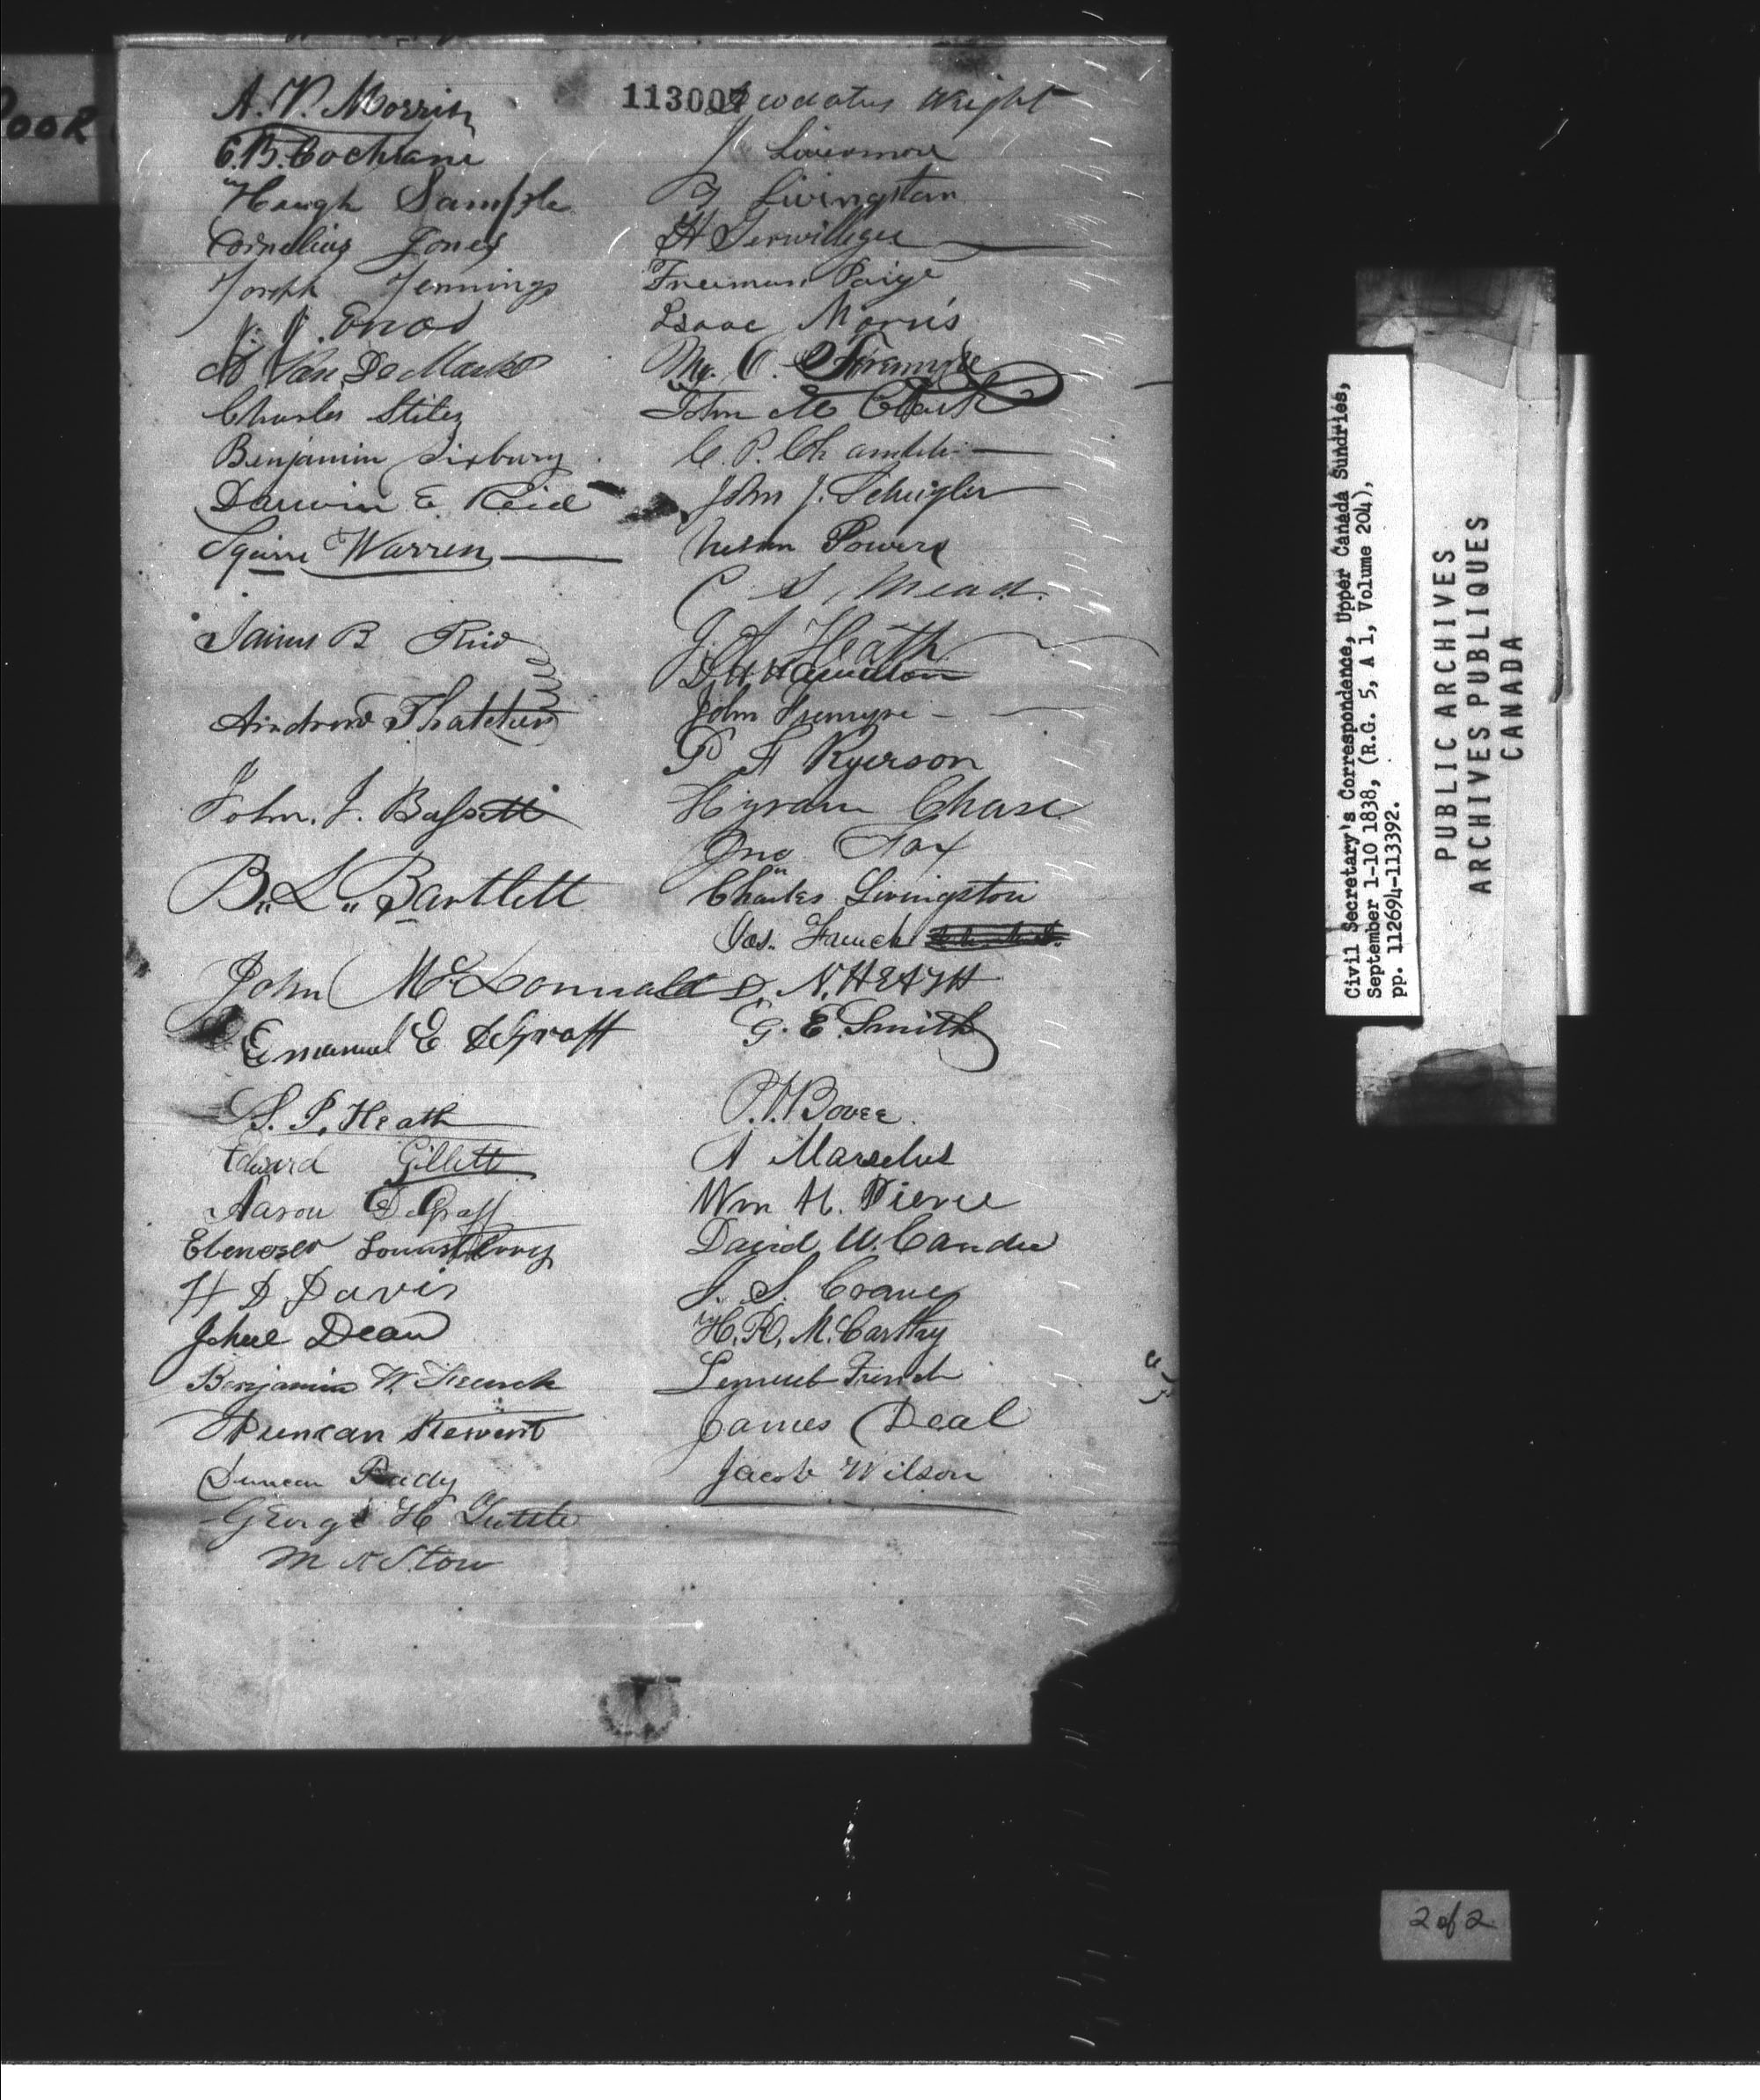 POOR
113007
A. V. Morris
C. B. Cochrane
Haugh Sample
Cornelius Jones
Joseph Jennings
Enos
Van De Mark
Charles Stiles
Benjamin Sixbury
Darwin E Reid
Squire Warren
James B Reid
Andrew Thatcher
John. J. Bassett
B. L. Bartlett
John McDonnald
Emanuel E DGraff
S. P. Heath
Edward Gillett
Aaron DGraff
Ebenezer Lounsberry
H D Davis
Jehiel Dean
Benjamin W. French
Duncan Stewart
Duncan Eady
George H Tuttle
M A Stow
Deodatus Wright
J Livermore
Livingston
H Terwilleger
Freeman Paige
Isaac Morris
John Mc Clark
C. P.
John J. Schuyler
Nelson Powers
C S, Mead.
J. A Heath
D H Hamilton
John Fremyre
P A Ryerson
Hyram Chase
Jno Fox
Charles Livingston
Jas. French
D. N. HEATH
G. E. Smith
P. V. Bovee.
A Marselus
Wm H. Pierce
David W. Candee
J. S. Crane
H. R. McCarthy
Lemuel French
James Deal
Jacob Wilson
Civil Secretary's Correspondence, Upper Canada Sundries,
September 1-10 1838, (R.G. 5, A 1, Volume 204),
pp. 112694-113392.
PUBLIC ARCHIVES
ARCHIVES PUBLIQUES
CANADA
2 of 2